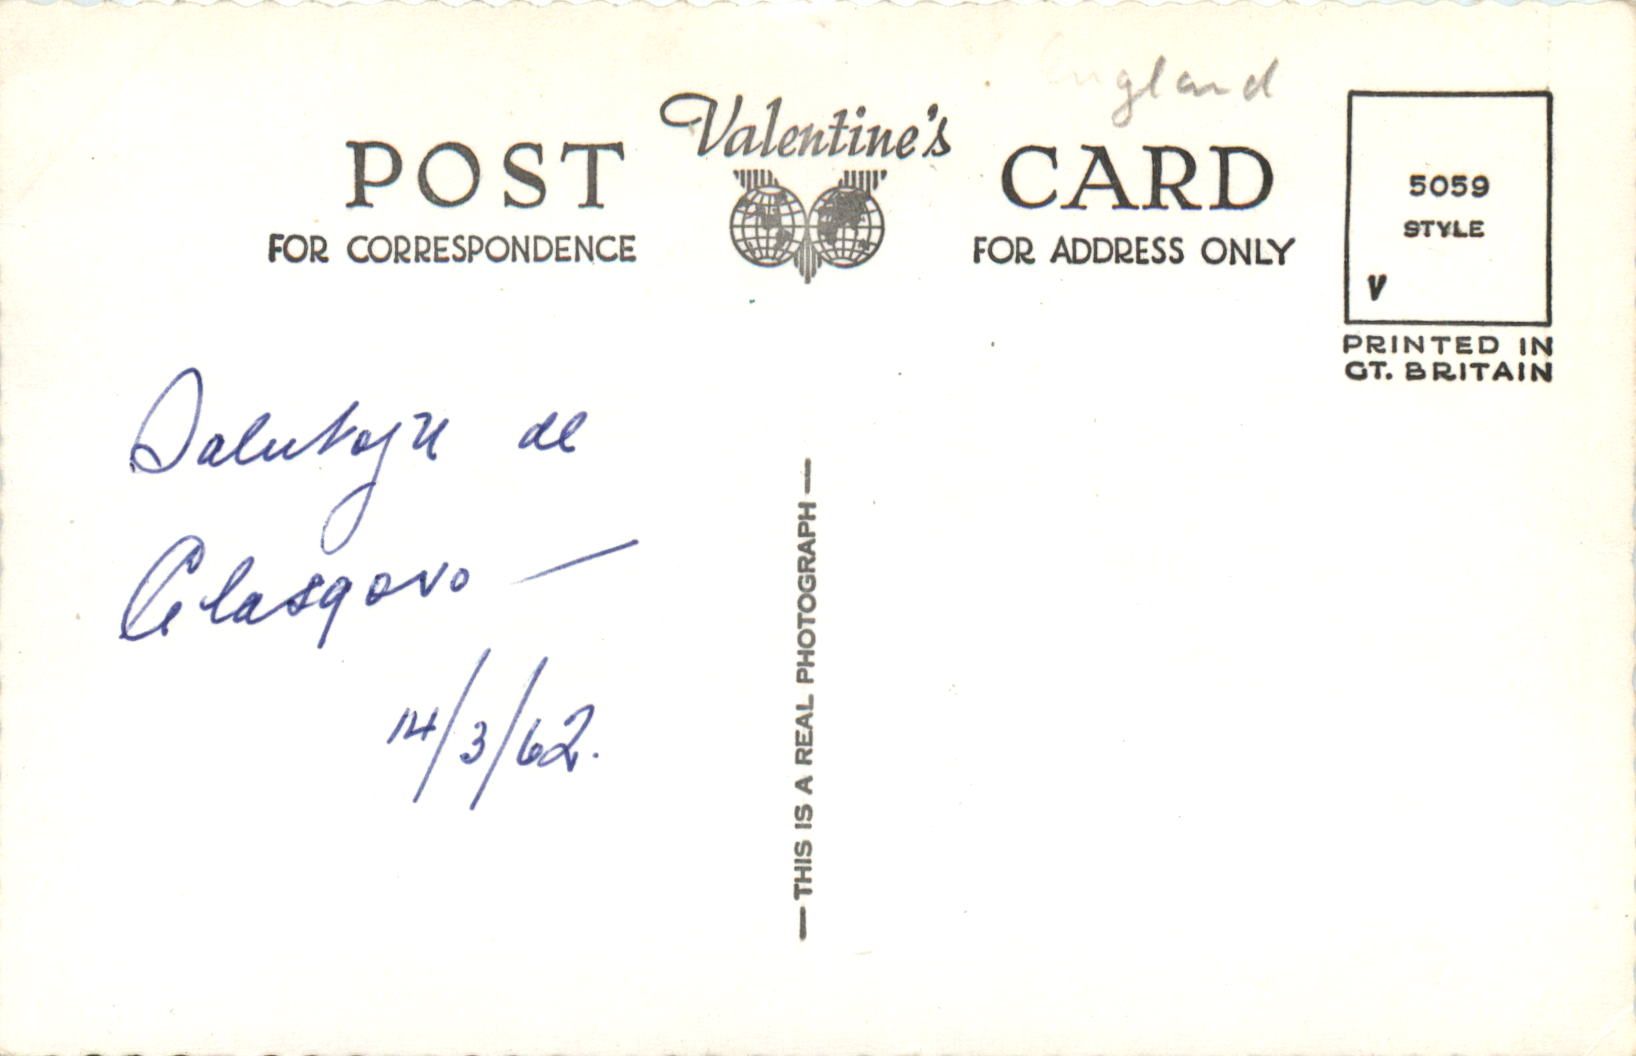 England
Valentine's
POST CARD
FOR CORRESPONDENCE
FOR ADDRESS ONLY
5059
STYLE
V
PRINTED IN
GT. BRITAIN
Salutojn de
Glasgovo —
14/3/62.
— THIS IS A REAL PHOTOGRAPH —